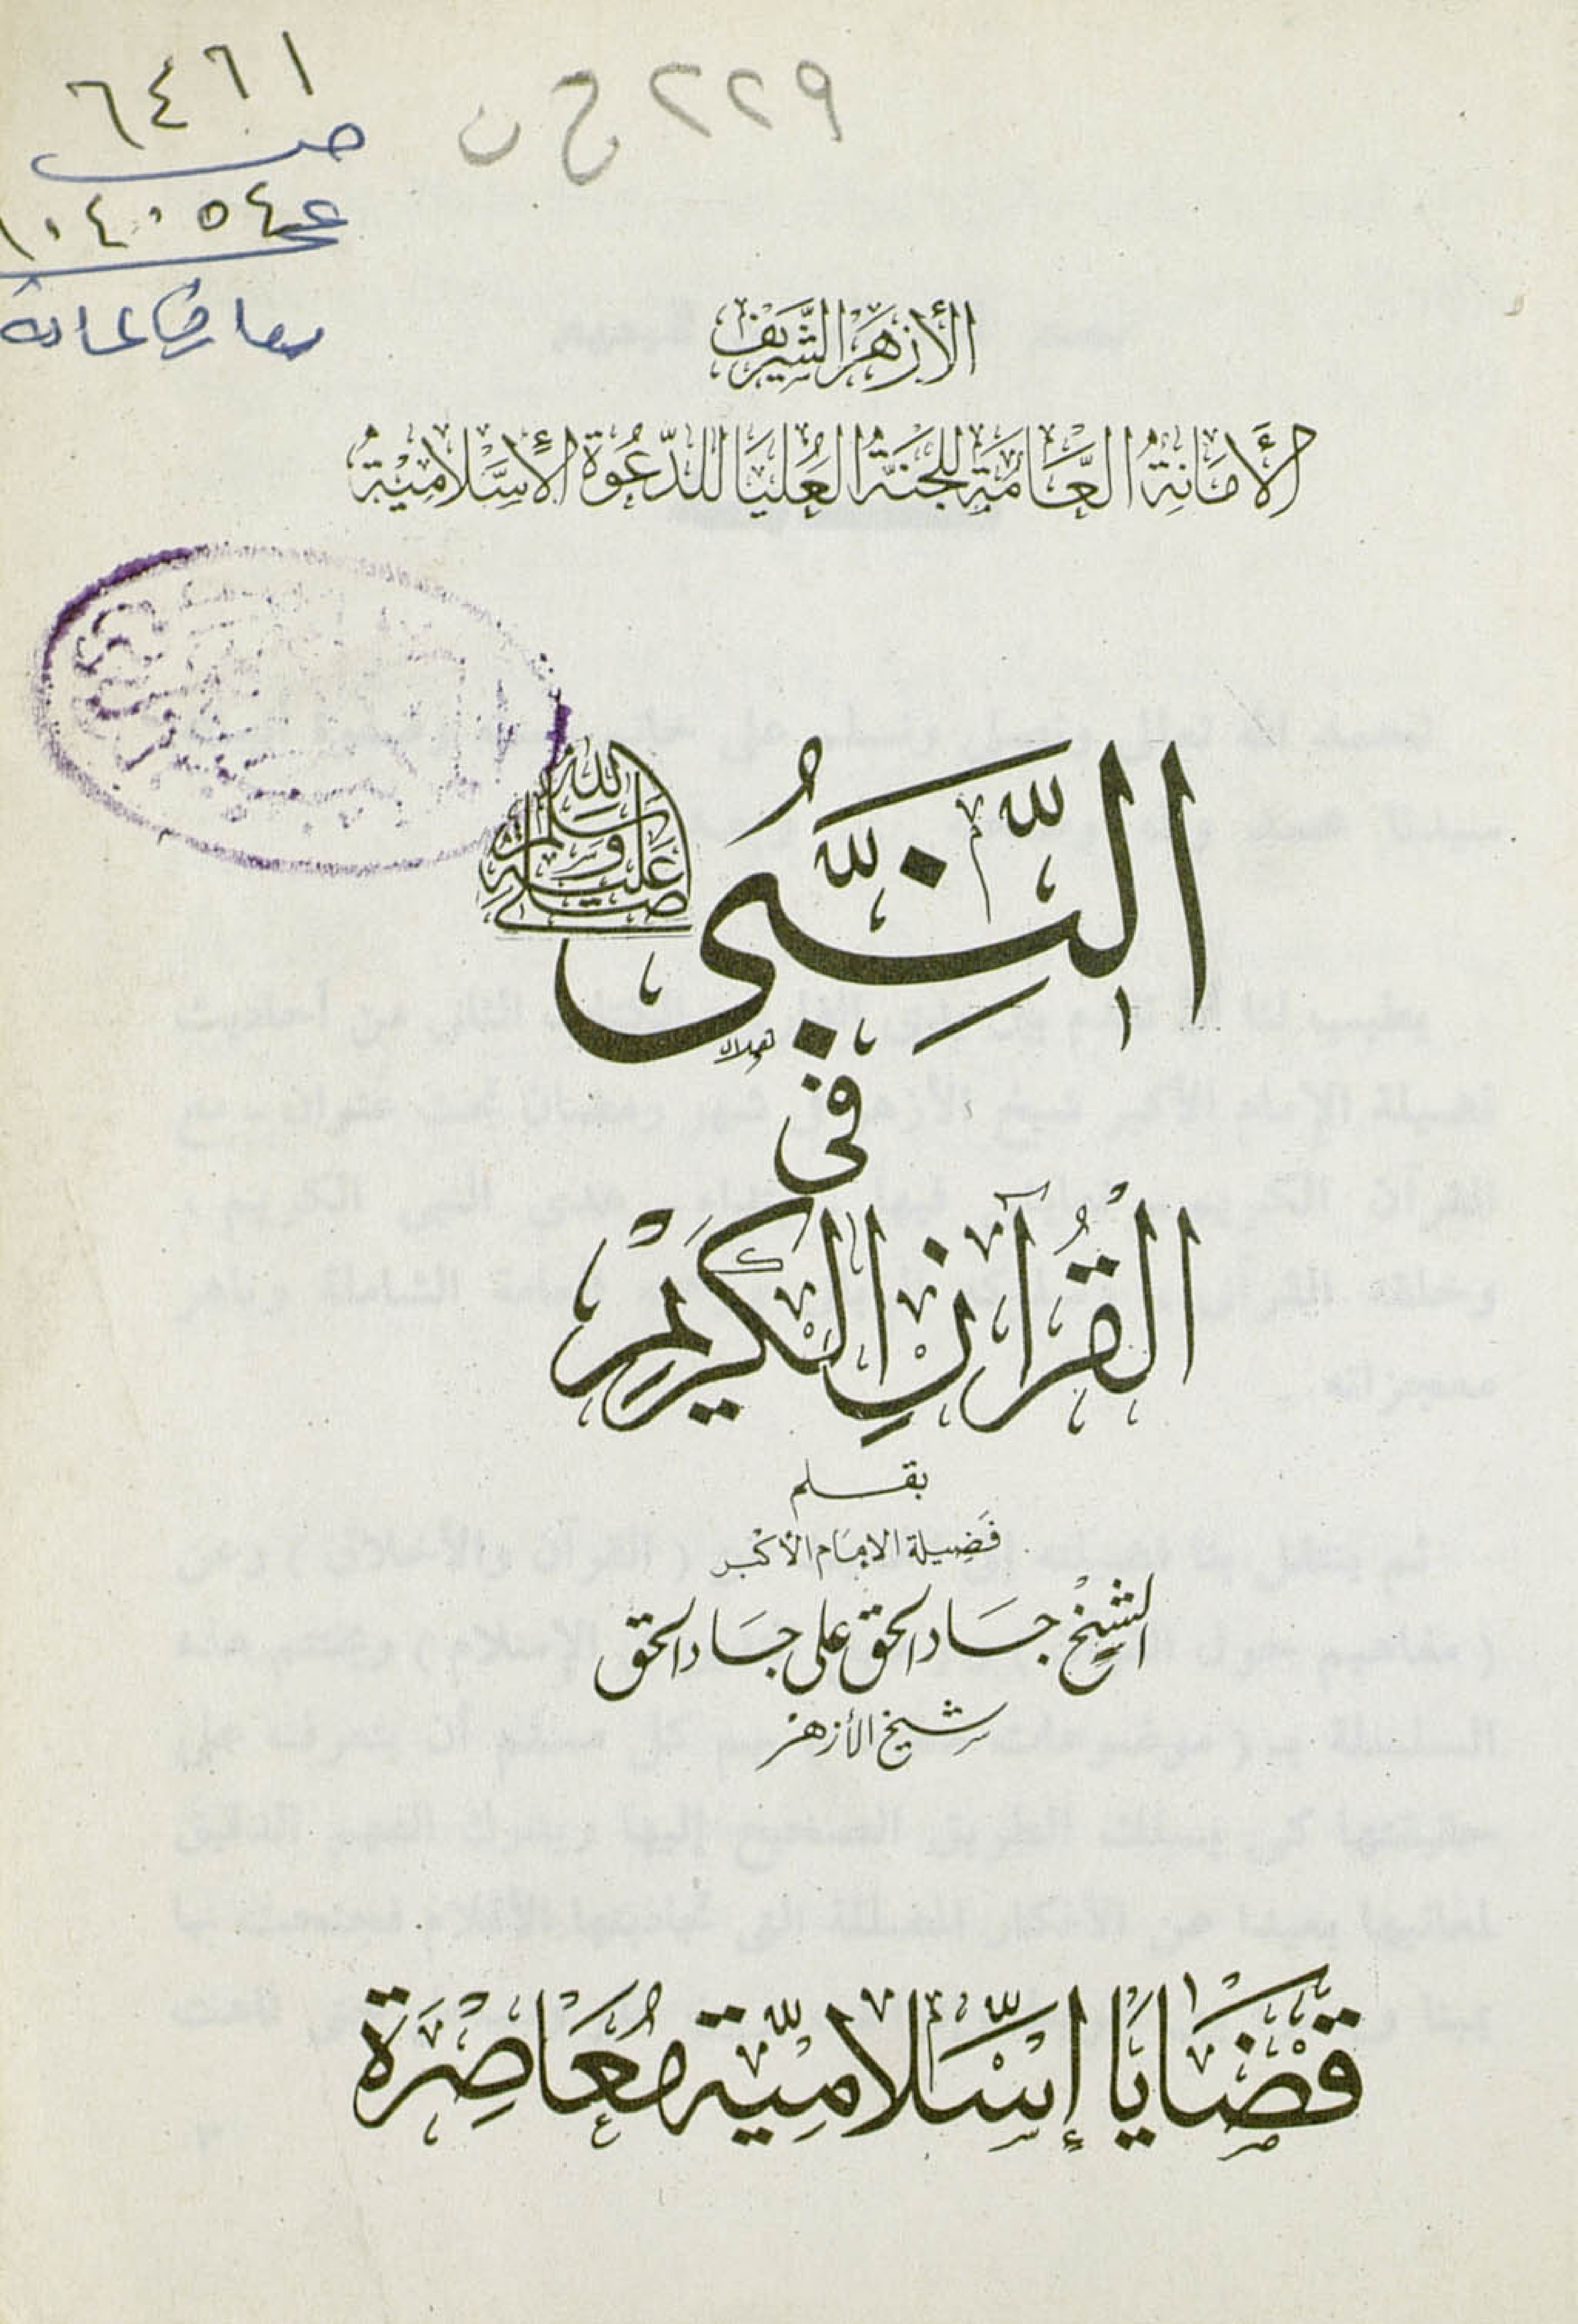 ٦٤٦١
٢٢٩ ج ن
الأزهر الشريف
الأمانة العامة للجنة العليا للدعوة الإسلامية
النبى صلى الله عليه وسلم
فى
القرآن الكريم
بقلم
فضيلة الامام الأكبر
الشيخ جاد الحق على جاد الحق
شيخ الأزهر
قضايا إسلامية معاصرة